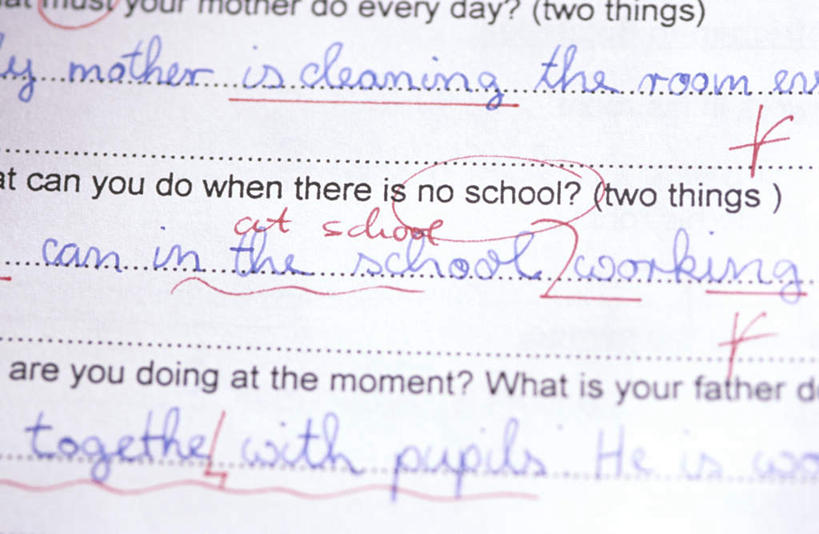 must your mother do every day? (two things)
mother is cleaning the room
can you do when there is no school? (two things )
at school
can in the school working
are you doing at the moment? What is your father
togethe with pupils He is